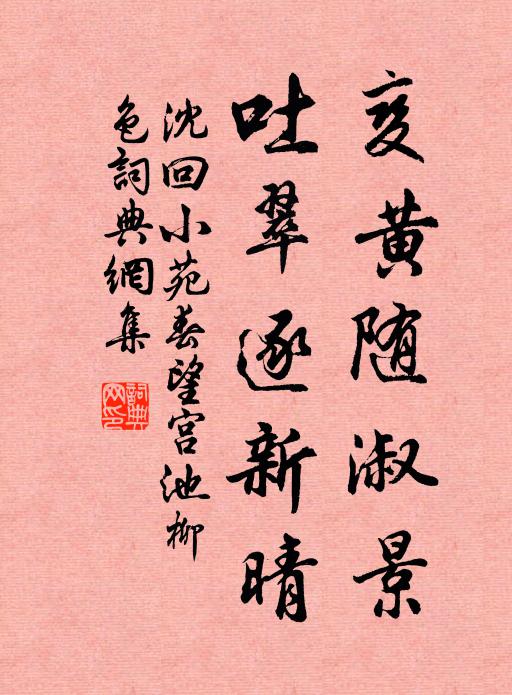 变黄随淑景
吐翠逐新晴
沈回小苑春望宫池柳
色詞典網集
詞典網印